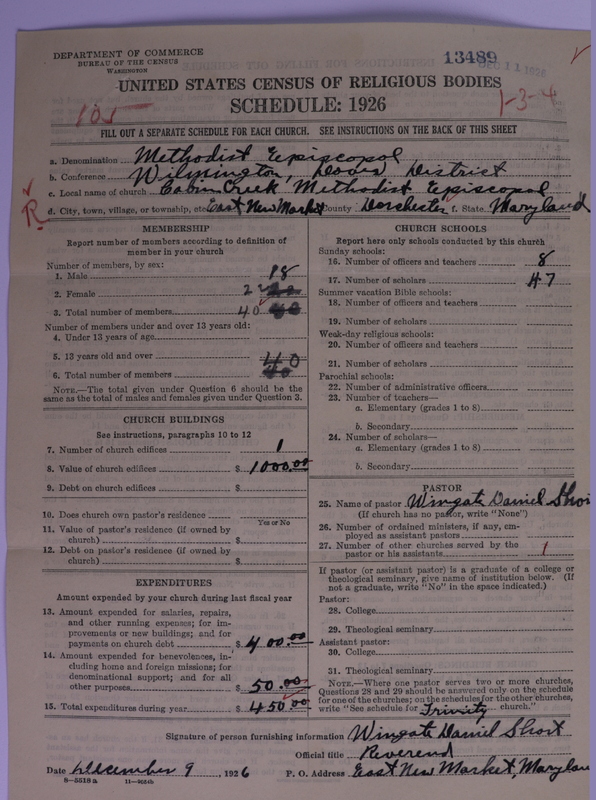 DEPARTMENT OF COMMERCE
BUREAU OF THE CENSUS
WASHINGTON
13489
DEC 11 1926
UNITED STATES CENSUS OF RELIGIOUS BODIES
SCHEDULE: 1926
105
1-3-4
FILL OUT A SEPARATE SCHEDULE FOR EACH CHURCH. SEE INSTRUCTIONS ON THE BACK OF THIS SHEET
a. Denomination Methodist Episcopol
b. Conference Wilmington, Dover District
c. Local name of church Cabin Creek Methodist Episcopol
d. City, town, village, or township, etc East New Market County Dorchester f. State Maryland
R
MEMBERSHIP
Report number of members according to definition of
member in your church
Number of members, by sex:
1. Male 18
2. Female 22
3. Total number of members 40
Number of members under and over 13 years old:
4. Under 13 years of age
5. 13 years old and over 40
6. Total number of members 40
NOTE.—The total given under Question 6 should be the
same as the total of males and females given under Question 3.
CHURCH BUILDINGS
See instructions, paragraphs 10 to 12
7. Number of church edifices 1
8. Value of church edifices $ 1000.00
9. Debt on church edifices $
10. Does church own pastor's residence
Yes or No
11. Value of pastor's residence (if owned by
church) $
12. Debt on pastor's residence (if owned by
church) $
EXPENDITURES
Amount expended by your church during last fiscal year
13. Amount expended for salaries, repairs,
and other running expenses; for im-
provements or new buildings; and for
payments on church debt $ 400.00
14. Amount expended for benevolences, in-
cluding home and foreign missions; for
denominational support; and for all
other purposes $ 50.00
15. Total expenditures during year $ 450.00
CHURCH SCHOOLS
Report here only schools conducted by this church
Sunday schools:
16. Number of officers and teachers 8
17. Number of scholars 47
Summer vacation Bible schools:
18. Number of officers and teachers
19. Number of scholars
Week-day religious schools:
20. Number of officers and teachers
21. Number of scholars
Parochial schools:
22. Number of administrative officers
23. Number of teachers—
a. Elementary (grades 1 to 8)
b. Secondary
24. Number of scholars—
a. Elementary (grades 1 to 8)
b. Secondary
PASTOR
25. Name of pastor Wingate Daniel Short
(If church has no pastor, write "None")
26. Number of ordained ministers, if any, em-
ployed as assistant pastors
27. Number of other churches served by the
pastor or his assistants 1
If pastor (or assistant pastor) is a graduate of a college or
theological seminary, give name of institution below. (If
not a graduate, write "No" in the space indicated.)
Pastor:
28. College
29. Theological seminary
Assistant pastor:
30. College
31. Theological seminary
NOTE.—Where one pastor serves two or more churches,
Questions 28 and 29 should be answered only on the schedule
for one of the churches; on the schedules for the other churches,
write "See schedule for Trinity church."
Signature of person furnishing information Wingate Daniel Short
Official title Reverend
Date December 9, 1926 P. O. Address East New Market, Maryland
8-5518 a 11-9554b